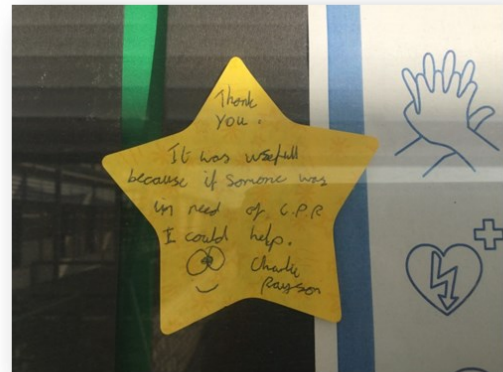 Thank
you.
It was usefull
because if Somone was
in need of C.P.R
I could help.
Charlie
Rayson